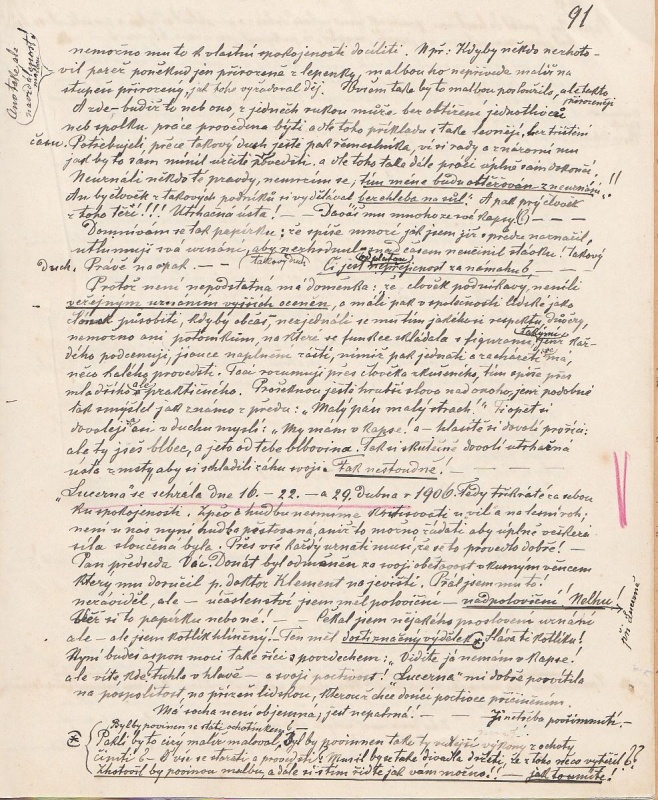 91
nemožno mu to k vlastní spokojenosti docíliti. Np.: Kdyby někdo nezhoto-
vil pařez poněkud jen přirozeně z lepenky, malbou ho nepřivede malíř na
stupeň přirozený, jak toho vyžadoval děj. Ovšem také by to malbou postačilo, ale takto
přirozeněji
Ano také, ale
nevzdálenost!
A zde - budiž to neb ono, z jedněch rukou může bez obtížení jednotlivců
neb spolku práce provedena býti a dle toho příkladu i take levněji, bez tříštění
času. Potřebuješ práce takový duch jestě pak řemeslníka, ví si rady a znázorní mu
jak by to sám mínil určiti provedsti. a dle toho take dále práci úplně sám dokončí.
Neuználi někdo té pravdy, neumřím se, tím méně budu obtěžován z neuznání. !!
An by člověk z takových podniků si vydělával bez chleba na sůl. A pak prý člověk
z toho těží!!! Utrhačná ústa! — Davaš mu mnoho ze své kapsy (?) — — —
Domnívám se tak papírku; že spíše mnozí jak jsem již z předu naznačil,
utlumují svá uznání, aby nezhrdnul, snad časem neučinil stávku! Takový
duch. Právě naopak. — takový duch Či jest nepřejícnost za námahu 6,
Protož není nepodstatná má domněnka: že člověk podnikavý, nenili
veřejným uznáním vyšších oceněn, a máli pak v společnosti lidské jako
článek působiti, kdyby občas, nezjednáli se mu tím jakéhosi respektu, důvěry,
nemožno ani potomkům, na které se funkce skládala s figurami, jenž kaž-
takými
dého podcenují, jsouce naplněni záští, nimiž pak jednati a zacházeti má,
něco kalého provedsti. Tací rozumují přes člověka zkušeného, tím spíše přes
mladšího ale praktičného. Prosoknou jestli hrubší slovo nad onoho, jenž podobně
tak smýšlel jak známo z předu: „Malý pán malý strach!" Ti opět si
dovolejí ani v duchu myslí: „My mám v kapse! a — hlasitě si dovolí prořící:
ale ty jseš blbec, a je to od tebe blbovina. Tak si skutečně dovolí utrhačná
ústa z msty, aby si schladili záhu svoji. Tak nestoudně! — — — —
„Lucerna" se sehrála dne 16. — 22. — a 29. dubna r 1906. Tedy třikráte za sebou
ku spokojenosti. Zpěv i hudbu nesmíme kritisovati u vil a na lesní roh;
není u nás nyní hudba postavená, aniž to možno žádati aby úplně veškerá
síla sloučená byla. Přes vše každý uznati musí, že se to provedlo dobře! —
Pan předseda Vác. Donát byl odměněn za svoji obětavost vkusným věncem
který mu doručil p. doktor Klement na jevišti. Přál jsem mu to!
nezáviděl, ale — účastenství jsem měl polovičné — nadpoloviční! Nelhu!
při Lucerně
Věř si to papírku nebo ne! — Čekal jsem nějakého proslovem uznání
ale — ale jsem kotlík hliněný! Ten měl dosti značný výdělek ⊛ Sláva ti kotlíku!
Nyní budeš aspoň moci také říci s povzdechem: „Vidíte já nemám v kapse!
ale víte, kde to tuhlo v hlavě — a svoji poctivost! „Lucerna" mi dobře posvítila
na pospolitost, na přízeň lidskou, kterou ž chce docíci poctivce přičiněním.
Má socha není objemná, jest nepatrná! — — Jí netřeba povšimnutí. —
Byl by povinen se státi ochotníkem 6.
⊛ Pakli by to čirý malíř maloval, byl by povinnen take ty vedlejší výkony z ochoty
činiti 6 — O vše se starati a provedsti? Musil by se take divadla držeti, že z toho něco vytěžil 6 ??
Zhotovil by povinou malbu, a dále si s tím řiďte jak vám možno!! — jak to umíte!